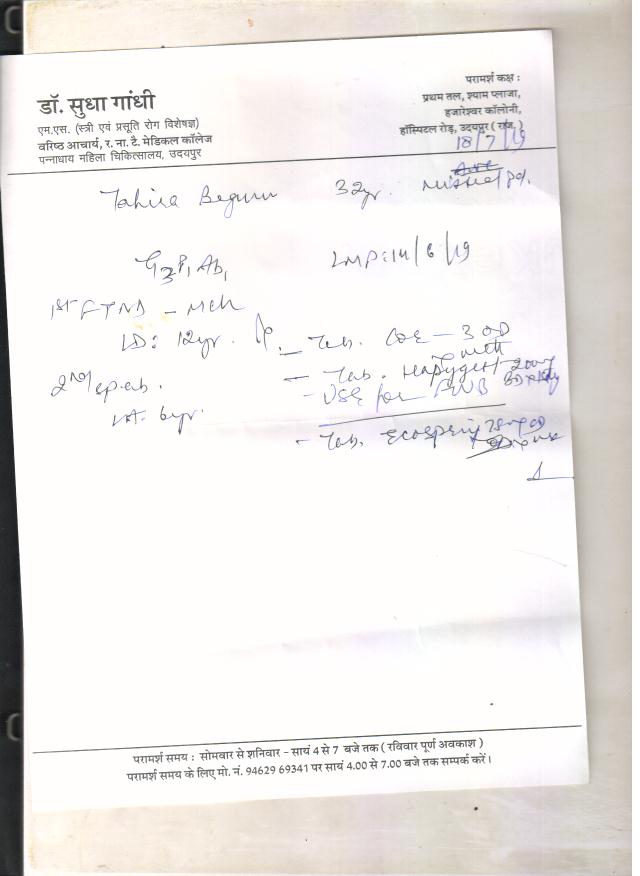 डॉ. सुधा गांधी
एम.एस. (स्त्री एवं प्रसूति रोग विशेषज्ञ)
वरिष्ठ आचार्य, र. ना. टै. मेडिकल कॉलेज
पन्नाधाय महिला चिकित्सालय, उदयपुर
परामर्श कक्ष :
प्रथम तल, श्याम प्लाजा,
हजारेश्वर कॉलोनी,
हॉस्पिटल रोड़, उदयपुर ( राज. )
18/7/19
Tahira Begum 32yr.
G3P1Ab1 LMP: 14/6/19
1st FTND - Mch
LD: 12yr. Tab. - 3 OD
- Tab. 200mg
2nd sp. ab. - USG for FWB
LA: 6yr.
- Tab. Ecosprin 75mg OD
परामर्श समय : सोमवार से शनिवार - सायं 4 से 7 बजे तक ( रविवार पूर्ण अवकाश )
परामर्श समय के लिए मो. नं. 94629 69341 पर सायं 4.00 से 7.00 बजे तक सम्पर्क करें।